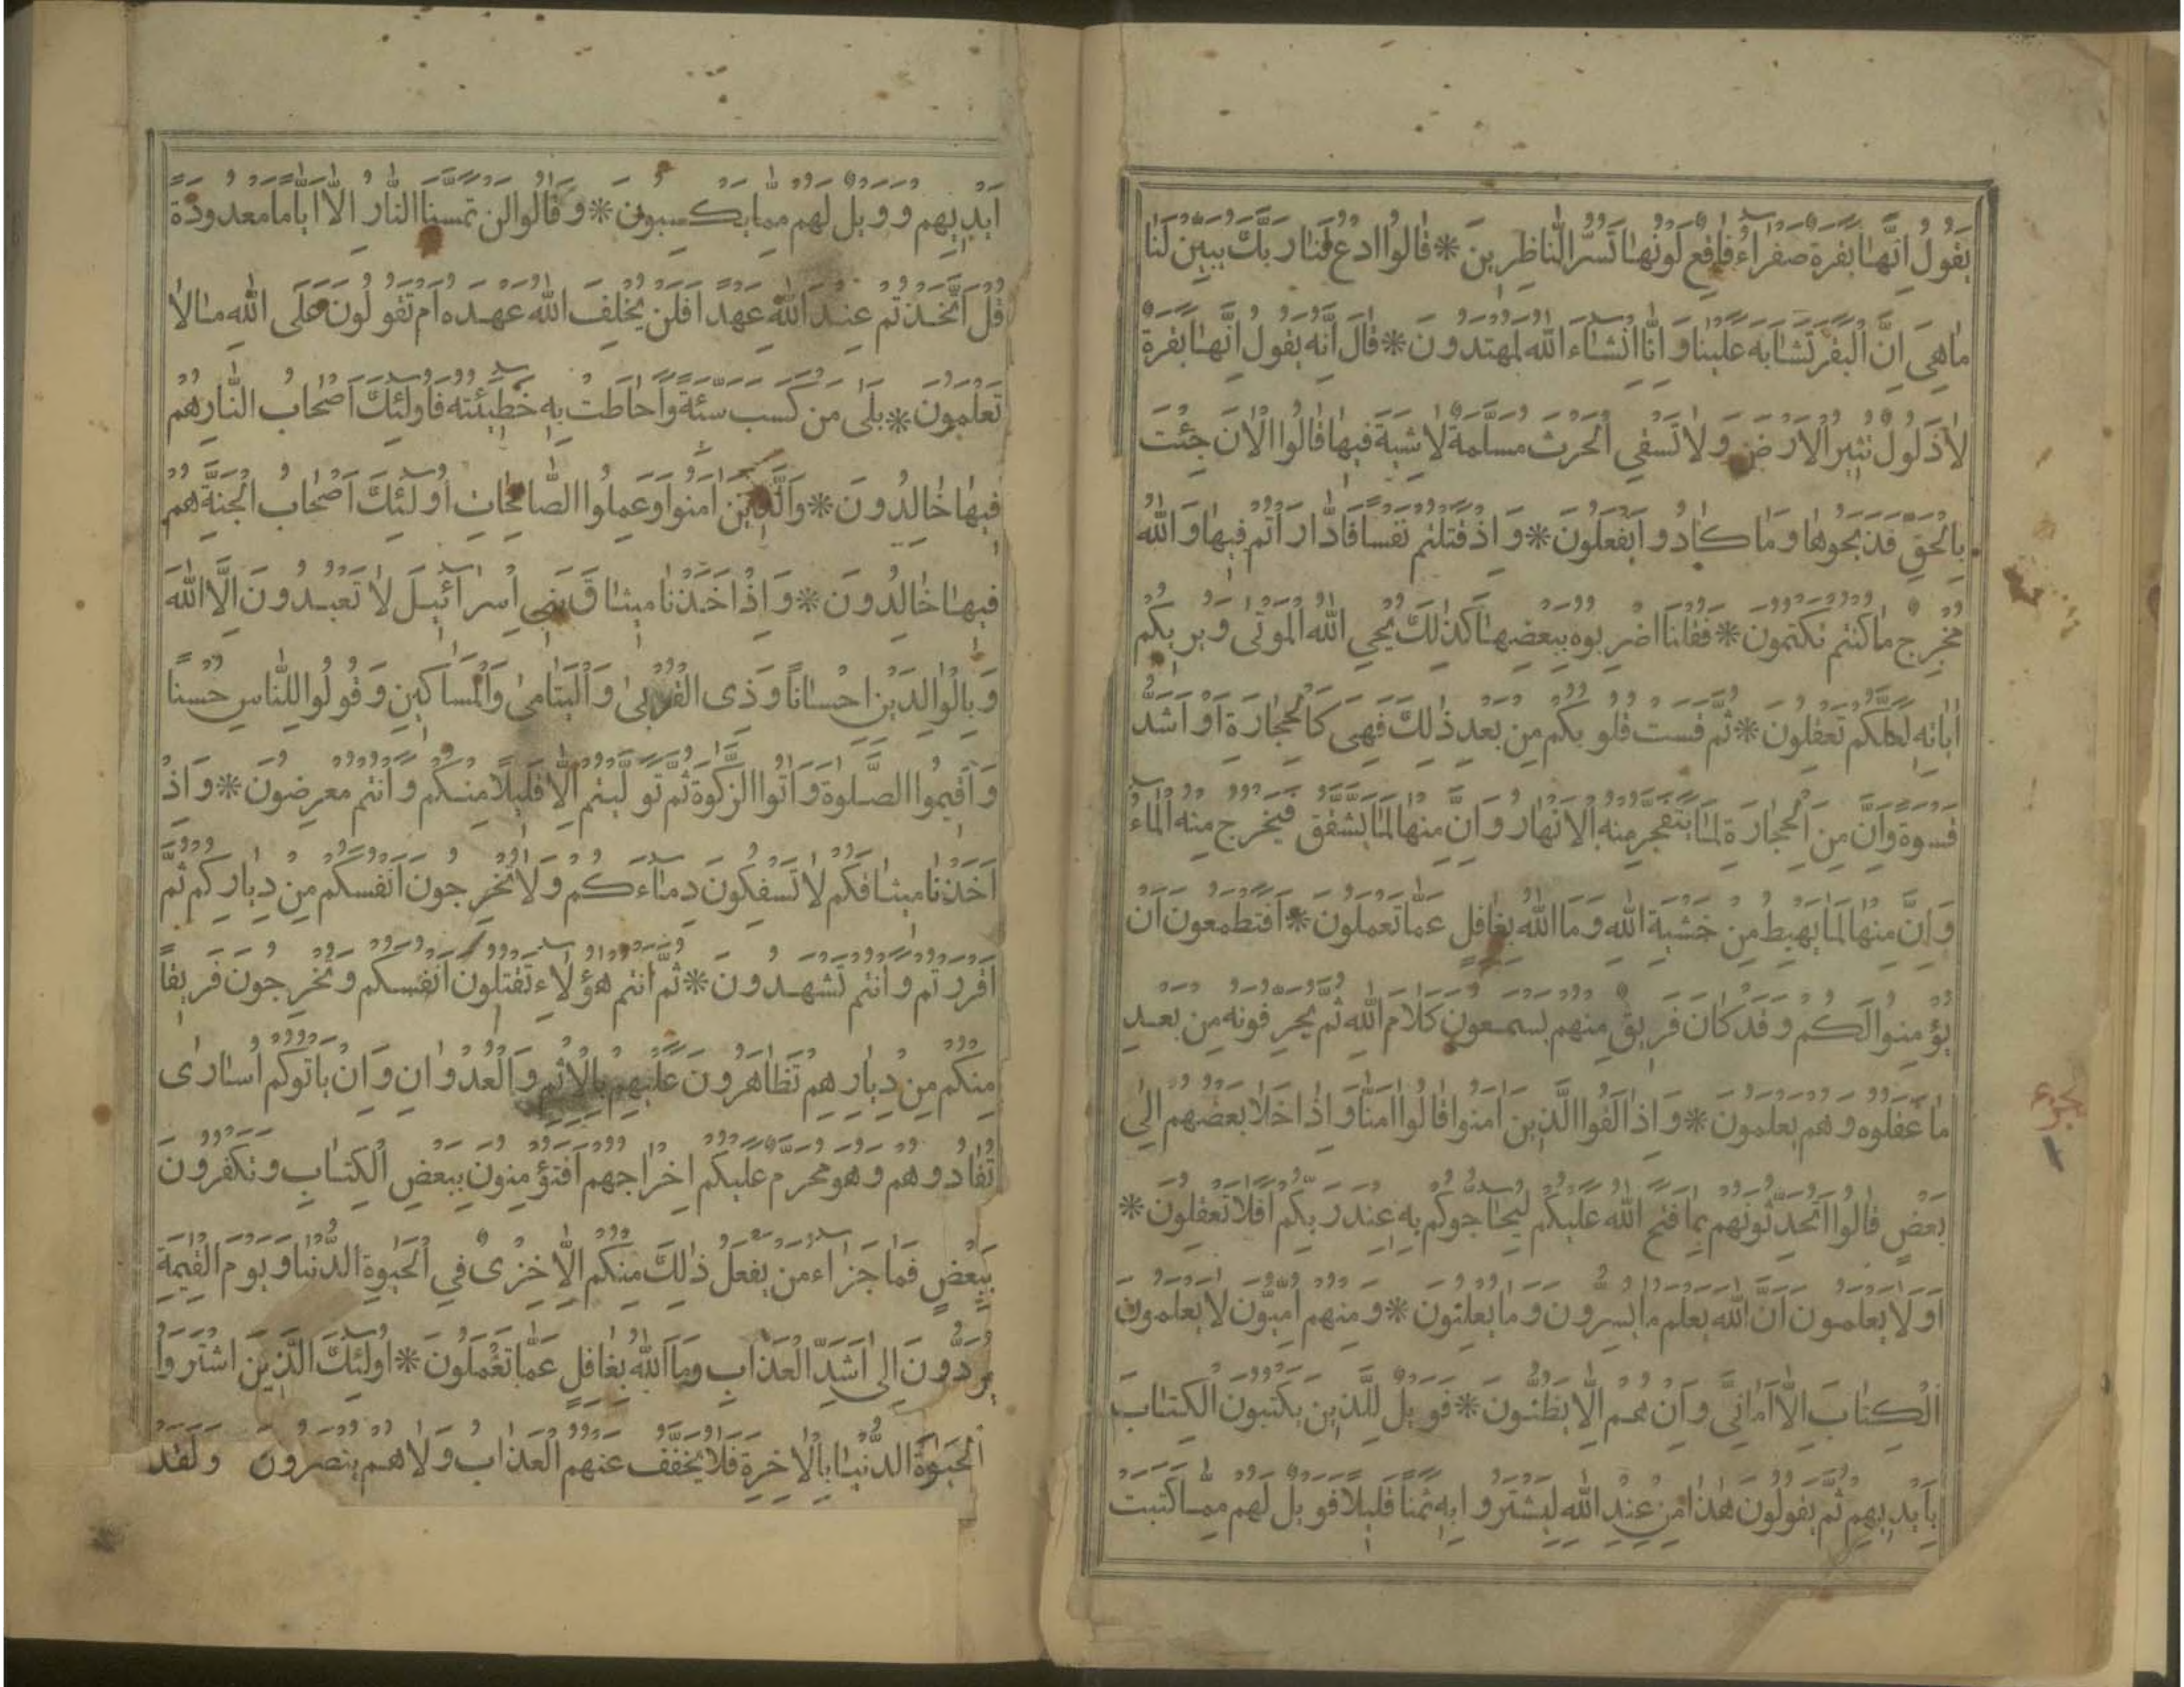 يَقُولُ اِنَّهٰا بَقَرَةٌ صَفْرٰاءُ فٰاقِعٌ لَوْنُهٰا تَسُرُّ النّٰاظِرِينَ * قٰالُوا ادْعُ لَنٰا رَبَّكَ يُبَيِّنْ لَنٰا
مٰا هِيَ اِنَّ الْبَقَرَ تَشٰابَهَ عَلَيْنٰا وَ اِنّٰا اِنْ شٰاءَ اللّٰهُ لَمُهْتَدُونَ * قٰالَ اِنَّهُ يَقُولُ اِنَّهٰا بَقَرَةٌ
لاٰ ذَلُولٌ تُثِيرُ الْاَرْضَ وَ لاٰ تَسْقِي الْحَرْثَ مُسَلَّمَةٌ لاٰ شِيَةَ فِيهٰا قٰالُوا الْاٰنَ جِئْتَ
بِالْحَقِّ فَذَبَحُوهٰا وَ مٰا كٰادُوا يَفْعَلُونَ * وَ اِذْ قَتَلْتُمْ نَفْسًا فَادّٰارَأْتُمْ فِيهٰا وَ اللّٰهُ
مُخْرِجٌ مٰا كُنْتُمْ تَكْتُمُونَ * فَقُلْنَا اضْرِبُوهُ بِبَعْضِهٰا كَذٰلِكَ يُحْيِ اللّٰهُ الْمَوْتٰى وَ يُرِيكُمْ
اٰيٰاتِهِ لَعَلَّكُمْ تَعْقِلُونَ * ثُمَّ قَسَتْ قُلُوبُكُمْ مِنْ بَعْدِ ذٰلِكَ فَهِيَ كَالْحِجٰارَةِ اَوْ اَشَدُّ
قَسْوَةً وَ اِنَّ مِنَ الْحِجٰارَةِ لَمٰا يَتَفَجَّرُ مِنْهُ الْاَنْهٰارُ وَ اِنَّ مِنْهٰا لَمٰا يَشَّقَّقُ فَيَخْرُجُ مِنْهُ الْمٰاءُ
وَ اِنَّ مِنْهٰا لَمٰا يَهْبِطُ مِنْ خَشْيَةِ اللّٰهِ وَ مَا اللّٰهُ بِغٰافِلٍ عَمّٰا تَعْمَلُونَ * اَفَتَطْمَعُونَ اَنْ
يُؤْمِنُوا لَكُمْ وَ قَدْ كٰانَ فَرِيقٌ مِنْهُمْ يَسْمَعُونَ كَلاٰمَ اللّٰهِ ثُمَّ يُحَرِّفُونَهُ مِنْ بَعْدِ
مٰا عَقَلُوهُ وَ هُمْ يَعْلَمُونَ * وَ اِذٰا لَقُوا الَّذِينَ اٰمَنُوا قٰالُوا اٰمَنّٰا وَ اِذٰا خَلاٰ بَعْضُهُمْ اِلٰى
بَعْضٍ قٰالُوا اَتُحَدِّثُونَهُمْ بِمٰا فَتَحَ اللّٰهُ عَلَيْكُمْ لِيُحٰاجُّوكُمْ بِهِ عِنْدَ رَبِّكُمْ اَفَلاٰ تَعْقِلُونَ *
اَوَلاٰ يَعْلَمُونَ اَنَّ اللّٰهَ يَعْلَمُ مٰا يُسِرُّونَ وَ مٰا يُعْلِنُونَ * وَ مِنْهُمْ اُمِّيُّونَ لاٰ يَعْلَمُونَ
الْكِتٰابَ اِلاّٰ اَمٰانِيَّ وَ اِنْ هُمْ اِلاّٰ يَظُنُّونَ * فَوَيْلٌ لِلَّذِينَ يَكْتُبُونَ الْكِتٰابَ
بِاَيْدِيهِمْ ثُمَّ يَقُولُونَ هٰذٰا مِنْ عِنْدِ اللّٰهِ لِيَشْتَرُوا بِهِ ثَمَنًا قَلِيلاً فَوَيْلٌ لَهُمْ مِمّٰا كَتَبَتْ
اَيْدِيهِمْ وَ وَيْلٌ لَهُمْ مِمّٰا يَكْسِبُونَ * وَ قٰالُوا لَنْ تَمَسَّنَا النّٰارُ اِلاّٰ اَيّٰامًا مَعْدُودَةً
قُلْ اَتَّخَذْتُمْ عِنْدَ اللّٰهِ عَهْدًا فَلَنْ يُخْلِفَ اللّٰهُ عَهْدَهُ اَمْ تَقُولُونَ عَلَى اللّٰهِ مٰا لاٰ
تَعْلَمُونَ * بَلٰى مَنْ كَسَبَ سَيِّئَةً وَ اَحٰاطَتْ بِهِ خَطِيئَتُهُ فَاُولٰئِكَ اَصْحٰابُ النّٰارِ هُمْ
فِيهٰا خٰالِدُونَ * وَ الَّذِينَ اٰمَنُوا وَ عَمِلُوا الصّٰالِحٰاتِ اُولٰئِكَ اَصْحٰابُ الْجَنَّةِ هُمْ
فِيهٰا خٰالِدُونَ * وَ اِذْ اَخَذْنٰا مِيثٰاقَ بَنِي اِسْرٰائِيلَ لاٰ تَعْبُدُونَ اِلاَّ اللّٰهَ
وَ بِالْوٰالِدَيْنِ اِحْسٰانًا وَ ذِي الْقُرْبٰى وَ الْيَتٰامٰى وَ الْمَسٰاكِينِ وَ قُولُوا لِلنّٰاسِ حُسْنًا
وَ اَقِيمُوا الصَّلٰوةَ وَ اٰتُوا الزَّكٰوةَ ثُمَّ تَوَلَّيْتُمْ اِلاّٰ قَلِيلاً مِنْكُمْ وَ اَنْتُمْ مُعْرِضُونَ * وَ اِذْ
اَخَذْنٰا مِيثٰاقَكُمْ لاٰ تَسْفِكُونَ دِمٰاءَكُمْ وَ لاٰ تُخْرِجُونَ اَنْفُسَكُمْ مِنْ دِيٰارِكُمْ ثُمَّ
اَقْرَرْتُمْ وَ اَنْتُمْ تَشْهَدُونَ * ثُمَّ اَنْتُمْ هٰؤُلاٰءِ تَقْتُلُونَ اَنْفُسَكُمْ وَ تُخْرِجُونَ فَرِيقًا
مِنْكُمْ مِنْ دِيٰارِهِمْ تَظٰاهَرُونَ عَلَيْهِمْ بِالْاِثْمِ وَ الْعُدْوٰانِ وَ اِنْ يَأْتُوكُمْ اُسٰارٰى
تُفٰادُوهُمْ وَ هُوَ مُحَرَّمٌ عَلَيْكُمْ اِخْرٰاجُهُمْ اَفَتُؤْمِنُونَ بِبَعْضِ الْكِتٰابِ وَ تَكْفُرُونَ
بِبَعْضٍ فَمٰا جَزٰاءُ مَنْ يَفْعَلُ ذٰلِكَ مِنْكُمْ اِلاّٰ خِزْيٌ فِي الْحَيٰوةِ الدُّنْيٰا وَ يَوْمَ الْقِيٰمَةِ
يُرَدُّونَ اِلٰى اَشَدِّ الْعَذٰابِ وَ مَا اللّٰهُ بِغٰافِلٍ عَمّٰا تَعْمَلُونَ * اُولٰئِكَ الَّذِينَ اشْتَرَوُا
الْحَيٰوةَ الدُّنْيٰا بِالْاٰخِرَةِ فَلاٰ يُخَفَّفُ عَنْهُمُ الْعَذٰابُ وَ لاٰ هُمْ يُنْصَرُونَ وَ لَقَدْ